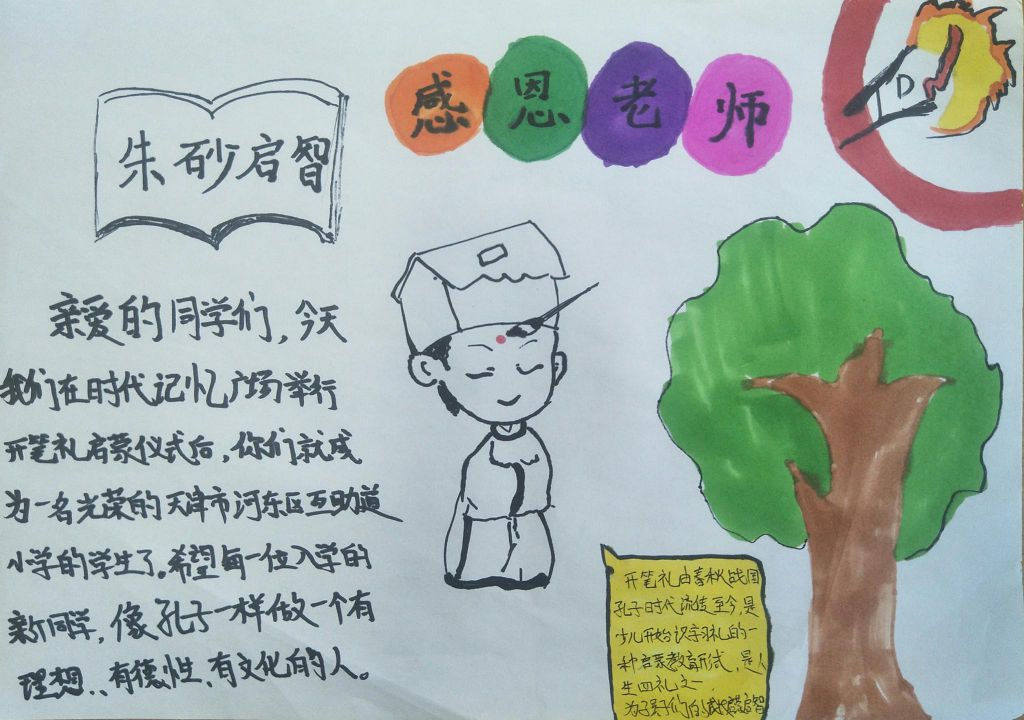 感恩老师
D
朱砂启智
亲爱的同学们,今天
我们在时代记忆广场举行
开笔礼启蒙仪式后,你们就成
为一名光荣的天津市河东区互助道
小学的学生了。希望每一位入学的
新同学,像孔子一样做一个有
理想、有德性、有文化的人。
开笔礼由春秋战国
孔子时代流传至今,是
少儿开始识字习礼的一
种启蒙教育形式,是人
生四礼之一.
为孩子们的启智